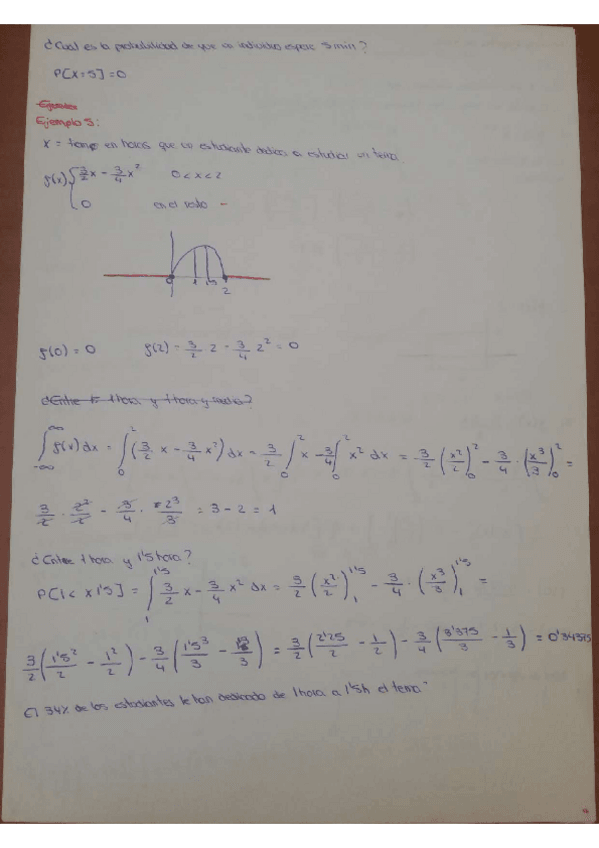 ¿Cual es la probabilidad de que un individuo espere 5 min?
P[X=5]=0
Ejemplo
Ejemplo 5:
X = tiempo en horas que un estudiante dedica a estudiar un tema.
f(x) { 3/2 x - 3/4 x² 0 < x < 2
0 en el resto
0 1 1'5 2
f(0) = 0 f(2) = 3/2 2 - 3/4 2² = 0
¿Entre 1 hora y 1 hora y media?
∫_{-∞}^{∞} f(x) dx = ∫_0^2 (3/2 x - 3/4 x²) dx = 3/2 ∫_0^2 x - 3/4 ∫_0^2 x² dx = 3/2 (x²/2)_0^2 - 3/4 · (x³/3)_0^2 =
3/2 · 2²/2 - 3/4 · 2³/3 = 3 - 2 = 1
¿Entre 1 hora y 1'5 hora?
P[1< x 1'5] = ∫_1^{1'5} 3/2 x - 3/4 x² dx = 3/2 (x²/2)_1^{1'5} - 3/4 · (x³/3)_1^{1'5} =
3/2 (1'5²/2 - 1²/2) - 3/4 (1'5³/3 - 1³/3) = 3/2 (2'25/2 - 1/2) - 3/4 (3'375/3 - 1/3) = 0'34375
El 34% de los estudiantes le han dedicado de 1 hora a 1'5h el tema.